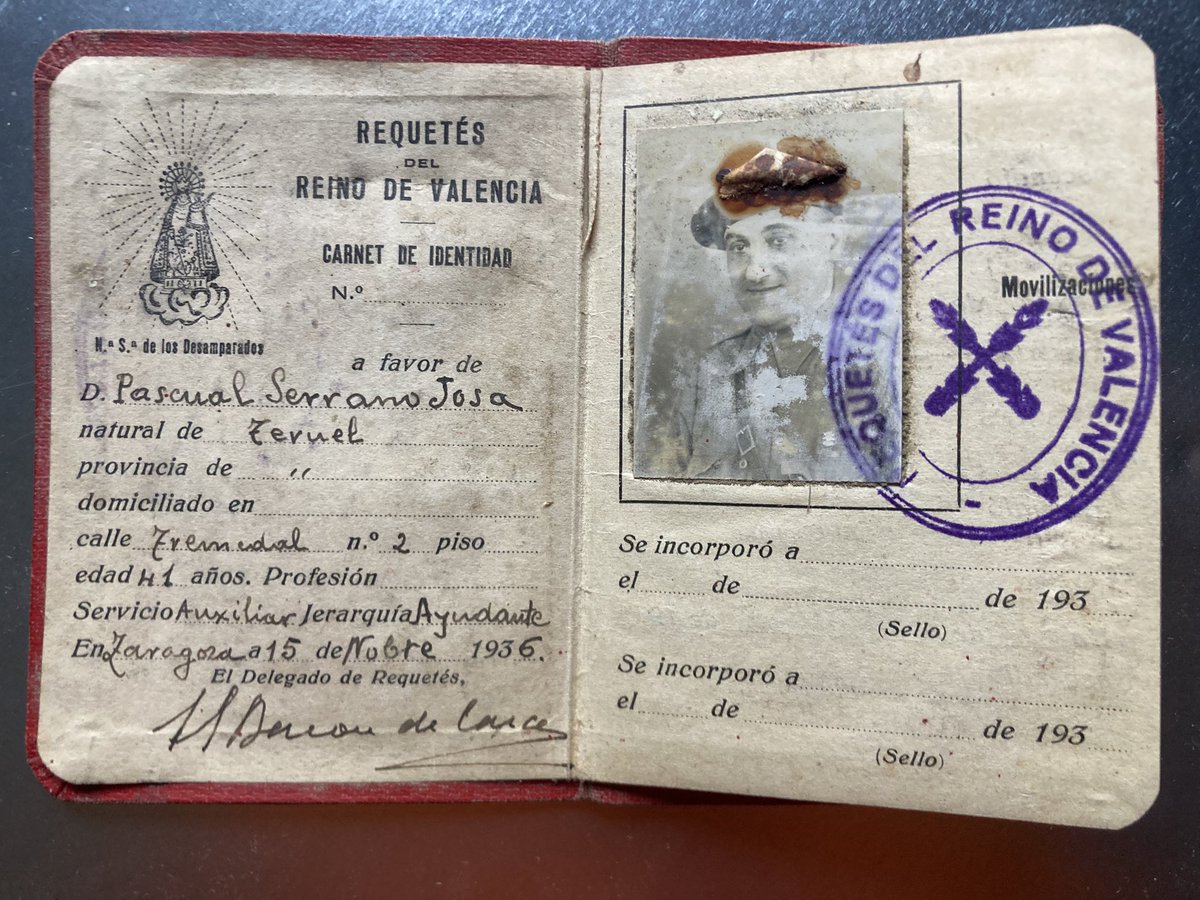 REQUETÉS
DEL
REINO DE VALENCIA
CARNET DE IDENTIDAD
N.º
N.ª S.ª de los Desamparados
a favor de
D. Pascual Serrano Josa
natural de Teruel
provincia de "
domiciliado en
calle Tremedal n.º 2 piso
edad 41 años. Profesión
Servicio Auxiliar Jerarquía Ayudante
En Zaragoza a 15 de Nobre 1936.
El Delegado de Requetés,
El Baron de
Movilizaciones
REQUETÉS DEL REINO DE VALENCIA
Se incorporó a
el de de 193
(Sello)
Se incorporó a
el de de 193
(Sello)